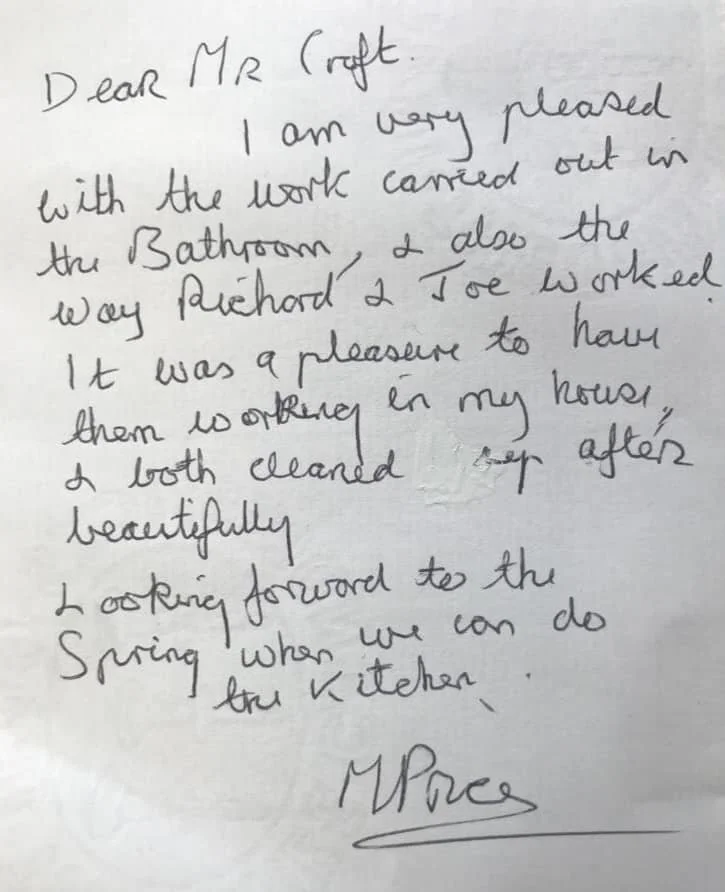 Dear Mr Croft.
I am very pleased
with the work carried out in
the Bathroom, & also the
way Richard & Joe worked.
It was a pleasure to have
them working in my house,
& both cleaned up after
beautifully
Looking forward to the
Spring when we can do
the Kitchen.